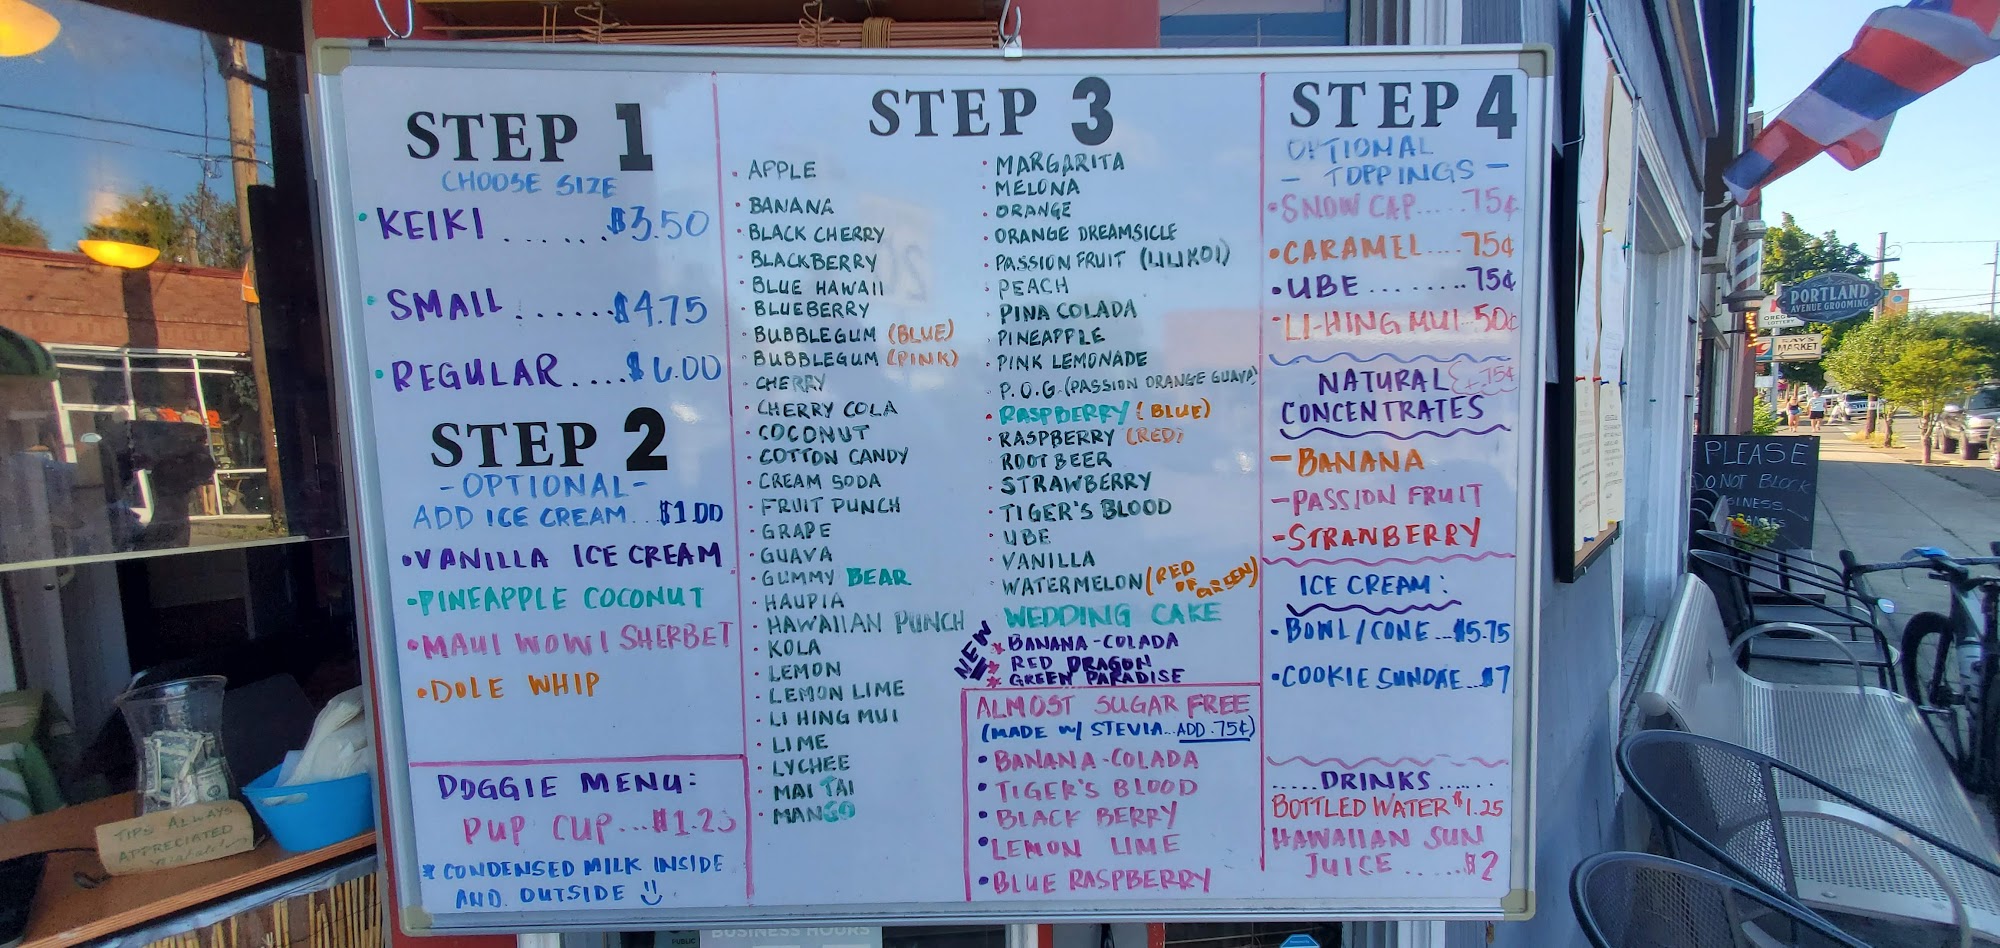 STEP 1
CHOOSE SIZE
• KEIKI ...... $3.50
• SMALL ...... $4.75
• REGULAR .... $6.00
STEP 2
- OPTIONAL -
ADD ICE CREAM... $1.00
• VANILLA ICE CREAM
• PINEAPPLE COCONUT
• MAUI WOWI SHERBET
• DOLE WHIP
DOGGIE MENU:
PUP CUP... $1.25
* CONDENSED MILK INSIDE
AND OUTSIDE
STEP 3
• APPLE
• BANANA
• BLACK CHERRY
• BLACKBERRY
• BLUE HAWAII
• BLUEBERRY
• BUBBLEGUM (BLUE)
• BUBBLEGUM (PINK)
• CHERRY
• CHERRY COLA
• COCONUT
• COTTON CANDY
• CREAM SODA
• FRUIT PUNCH
• GRAPE
• GUAVA
• GUMMY BEAR
• HAUPIA
• HAWAIIAN PUNCH
• KOLA
• LEMON
• LEMON LIME
• LI HING MUI
• LIME
• LYCHEE
• MAI TAI
• MANGO
• MARGARITA
• MELONA
• ORANGE
• ORANGE DREAMSICLE
• PASSION FRUIT (LILIKOI)
• PEACH
• PINA COLADA
• PINEAPPLE
• PINK LEMONADE
• P.O.G. (PASSION ORANGE GUAVA)
• RASPBERRY (BLUE)
• RASPBERRY (RED)
• ROOT BEER
• STRAWBERRY
• TIGER'S BLOOD
• UBE
• VANILLA
• WATERMELON (RED OR GREEN)
WEDDING CAKE
NEW
* BANANA-COLADA
* RED DRAGON
* GREEN PARADISE
ALMOST SUGAR FREE
(MADE W/ STEVIA... ADD .75¢)
• BANANA-COLADA
• TIGER'S BLOOD
• BLACK BERRY
• LEMON LIME
• BLUE RASPBERRY
STEP 4
OPTIONAL
- TOPPINGS -
• SNOW CAP..... .75¢
• CARAMEL.... .75¢
• UBE ........ .75¢
• LI-HING MUI.. 50¢
NATURAL +.75¢
CONCENTRATES
- BANANA
- PASSION FRUIT
- STRANBERRY
ICE CREAM:
• BOWL/CONE... $5.75
• COOKIE SUNDAE... $7
.....DRINKS......
BOTTLED WATER $1.25
HAWAIIAN SUN
JUICE ...... $2
TIPS ALWAYS
APPRECIATED
BUSINESS HOURS
PORTLAND
AVENUE GROOMING
LOTTERY
MARKET
PLEASE
DO NOT BLOCK